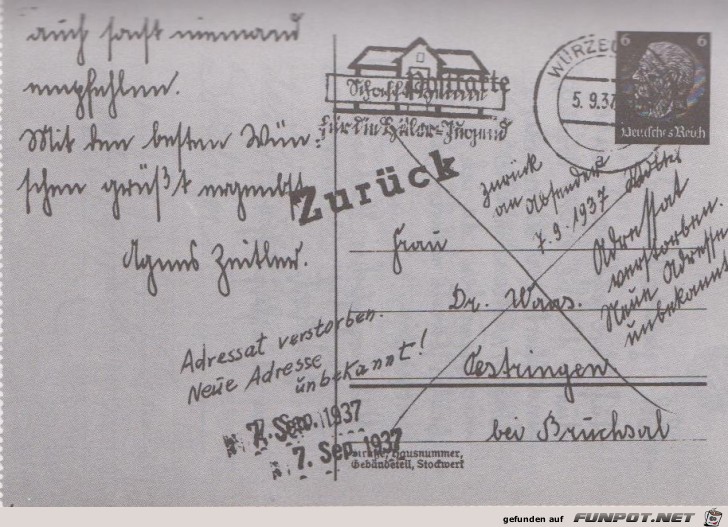 auch sonst niemand
empfehlen.
Mit den besten Wün-
schen grüßt ergebenst
Agnes Zeitler.
Postkarte
Schafft Heime
für die Hitler-Jugend
WÜRZB
5.9.37
6 6
Deutsches Reich
Zurück
zurück
an Absender
7.9.1937
Adressat
verstorben.
Neue Adresse
unbekannt
Frau
Dr. Waas.
Oestringen
bei Bruchsal
Adressat verstorben.
Neue Adresse
unbekannt!
7. Sep. 1937
7. Sep. 1937
Straße, Hausnummer,
Gebäudeteil, Stockwerk
gefunden auf FUNPOT.NET